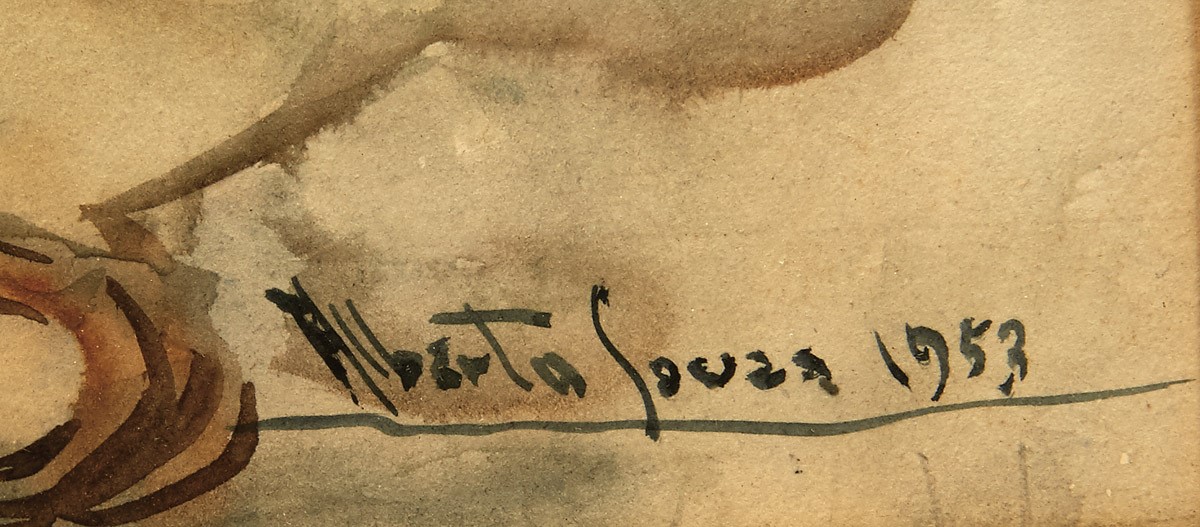 Alberto Souza 1953